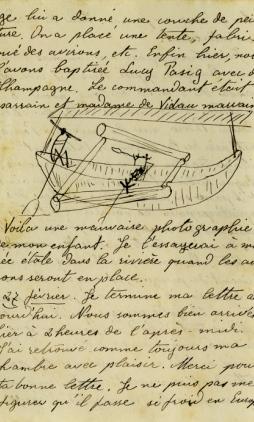 ge lui a donné une couche de pein
ture. On a placé une tente, fabri
qué des avirons, etc. Enfin hier, nous
l'avons baptisée Lucy Pasig avec du
Champagne. Le commandant était
parrain et madame de Vidau marraine
Voilà une mauvaise photographie
de mon enfant. Je l'essayerai à ma
rée étale dans la rivière quand les avi
rons seront en place.
27 février. Je termine ma lettre au
jourd'hui. Nous sommes bien arrivés
hier à 2 heures de l'après-midi
J'ai retrouvé comme toujours ma
chambre avec plaisir. Merci pour
ta bonne lettre. Je ne puis pas me
figurer qu'il fasse si froid en Europe